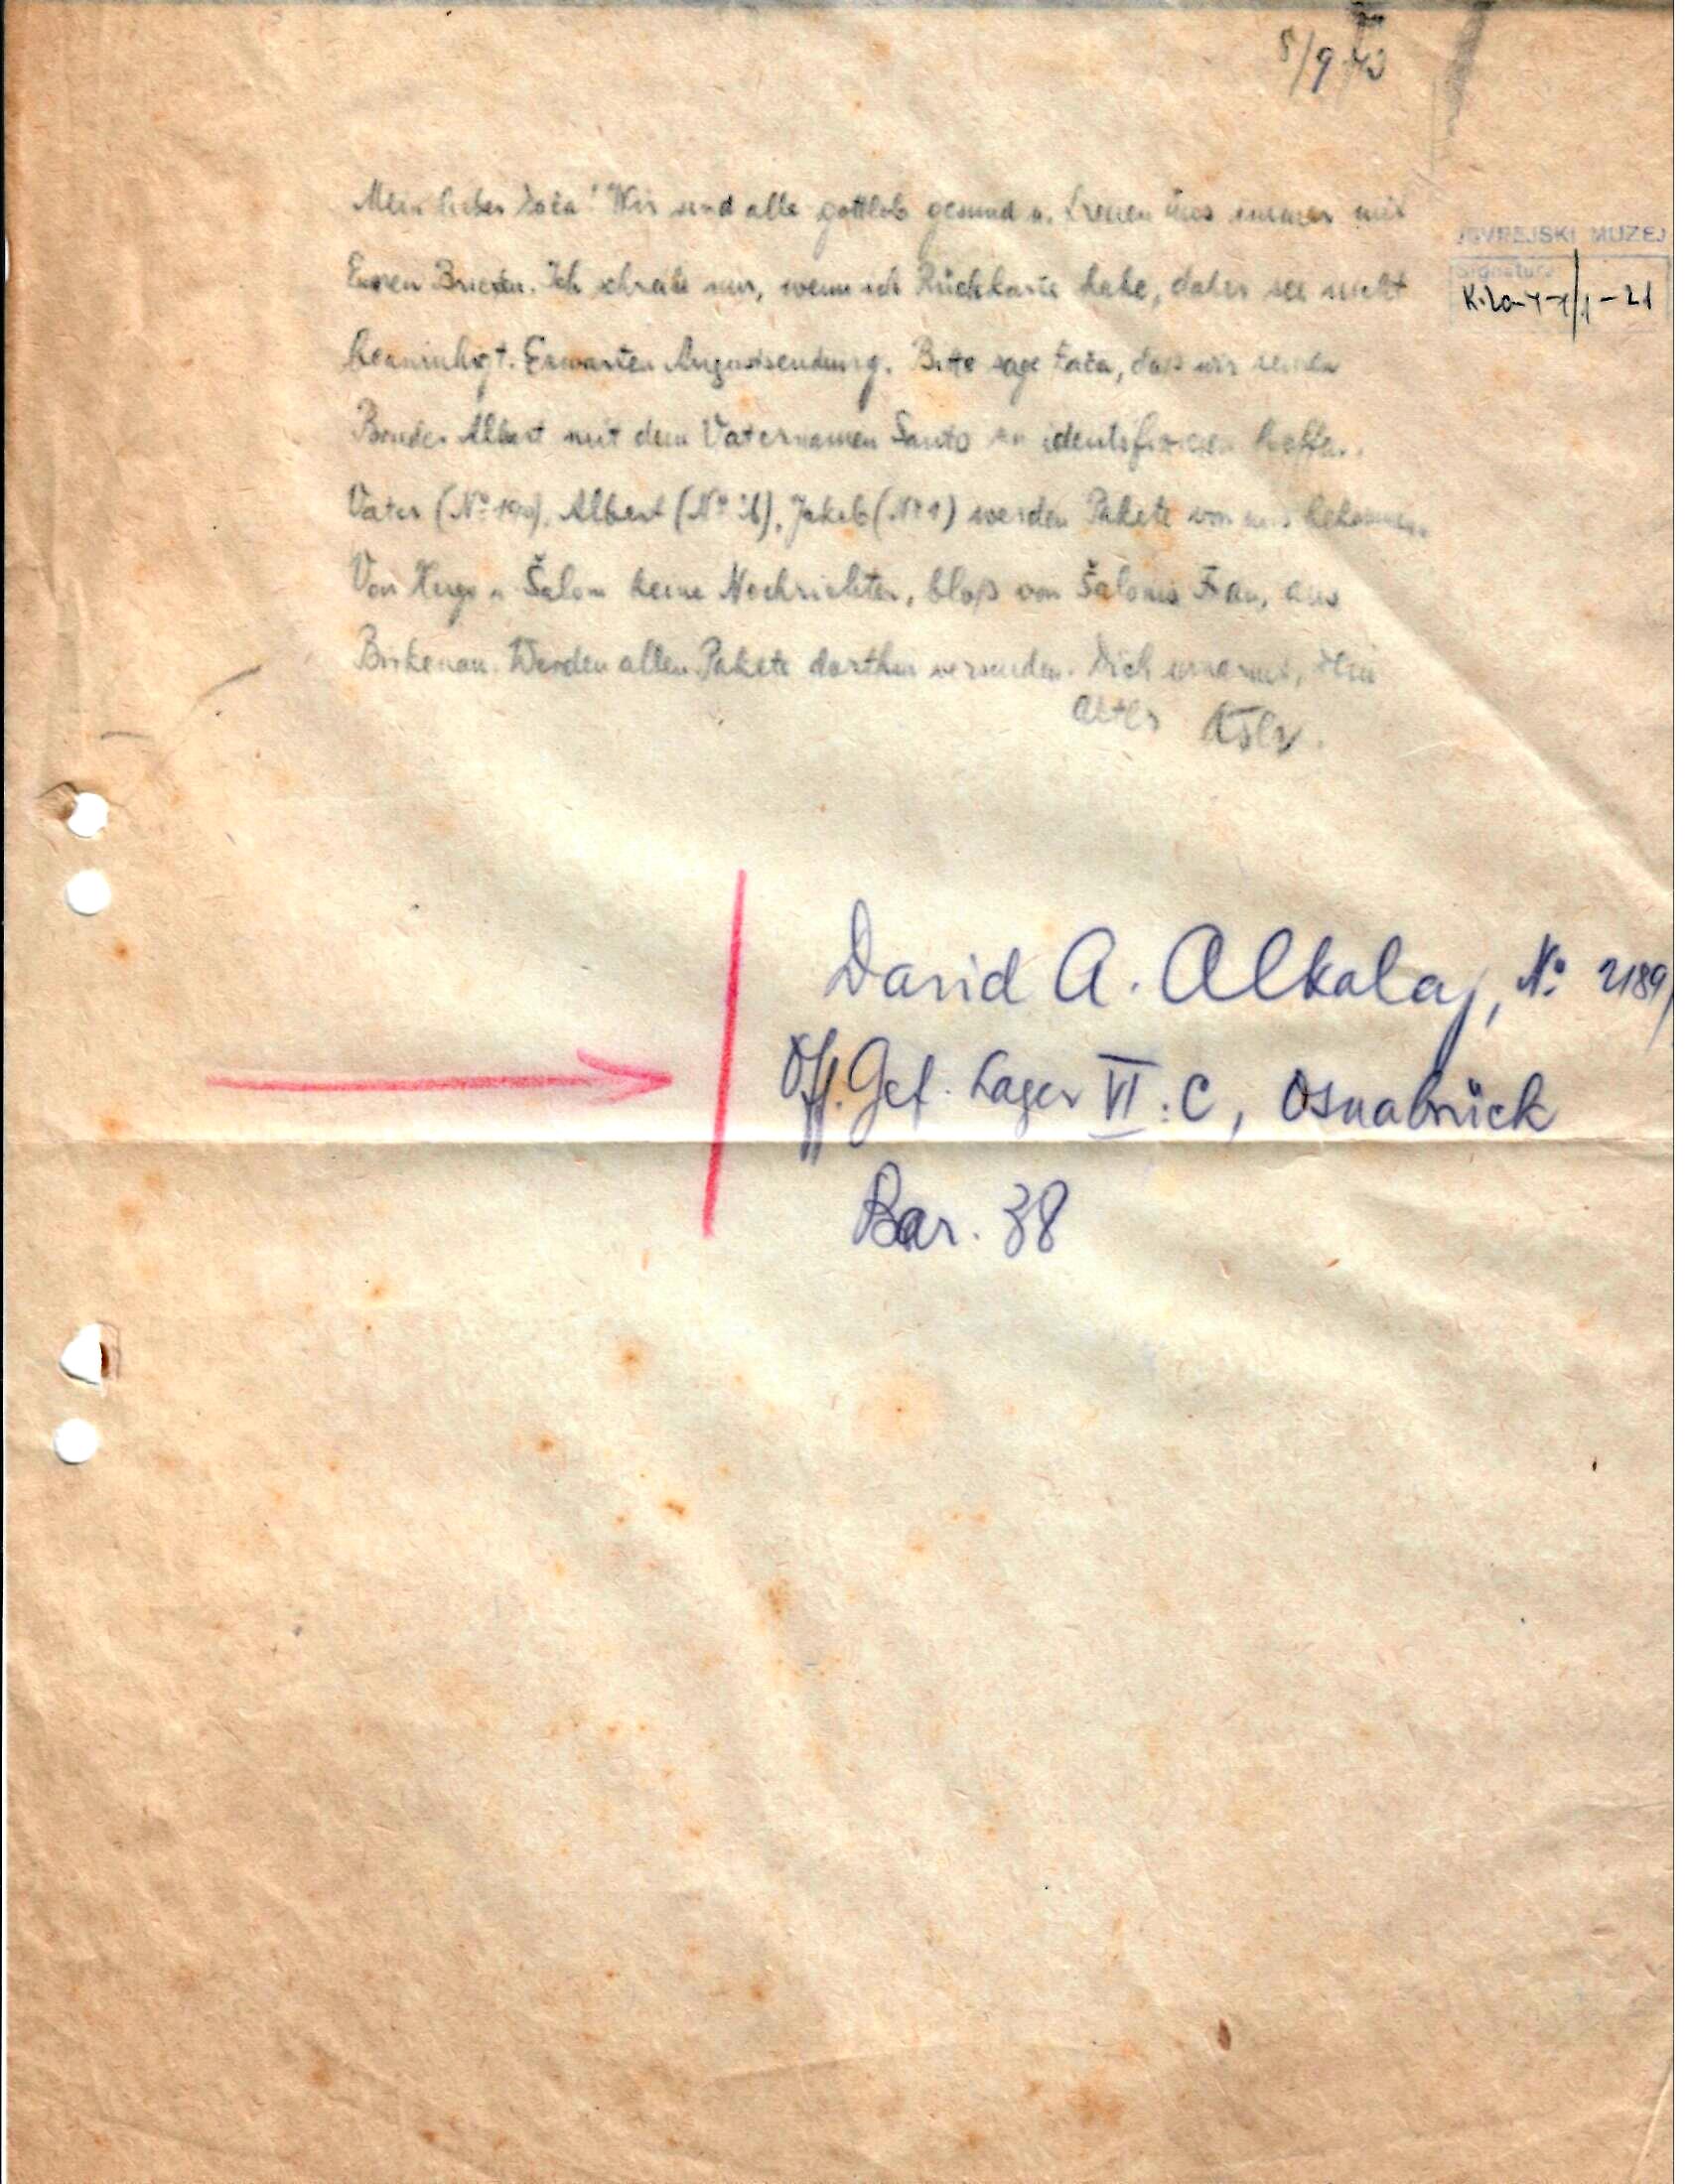 5/9 43
Mein lieber Zoča! Wir sind alle gottlob gesund u. freuen uns immer mit
Euren Briefen. Ich schreibe nur, wenn ich Rückkarte habe, daher sei nicht
beunruhigt. Erwarten Augustsendung. Bitte sage Žača, daß wir seinen
Bruder Albert mit dem Vaternamen Santo zu identifizieren hoffen.
Vater (No), Albert (No), Jakob (No 1) werden Pakete von uns bekommen.
Von Hugo u Šalom keine Nachrichten, bloß von Šaloms Frau, aus
Birkenau. Werden allen Pakete dorthin versenden. Dich umarmt, Dein
alter
JEVREJSKI MUZEJ
Signatura
David A. Alkalaj, No 2189/
Off. Gef. Lager VI. C, Osnabrück
Bar. 38